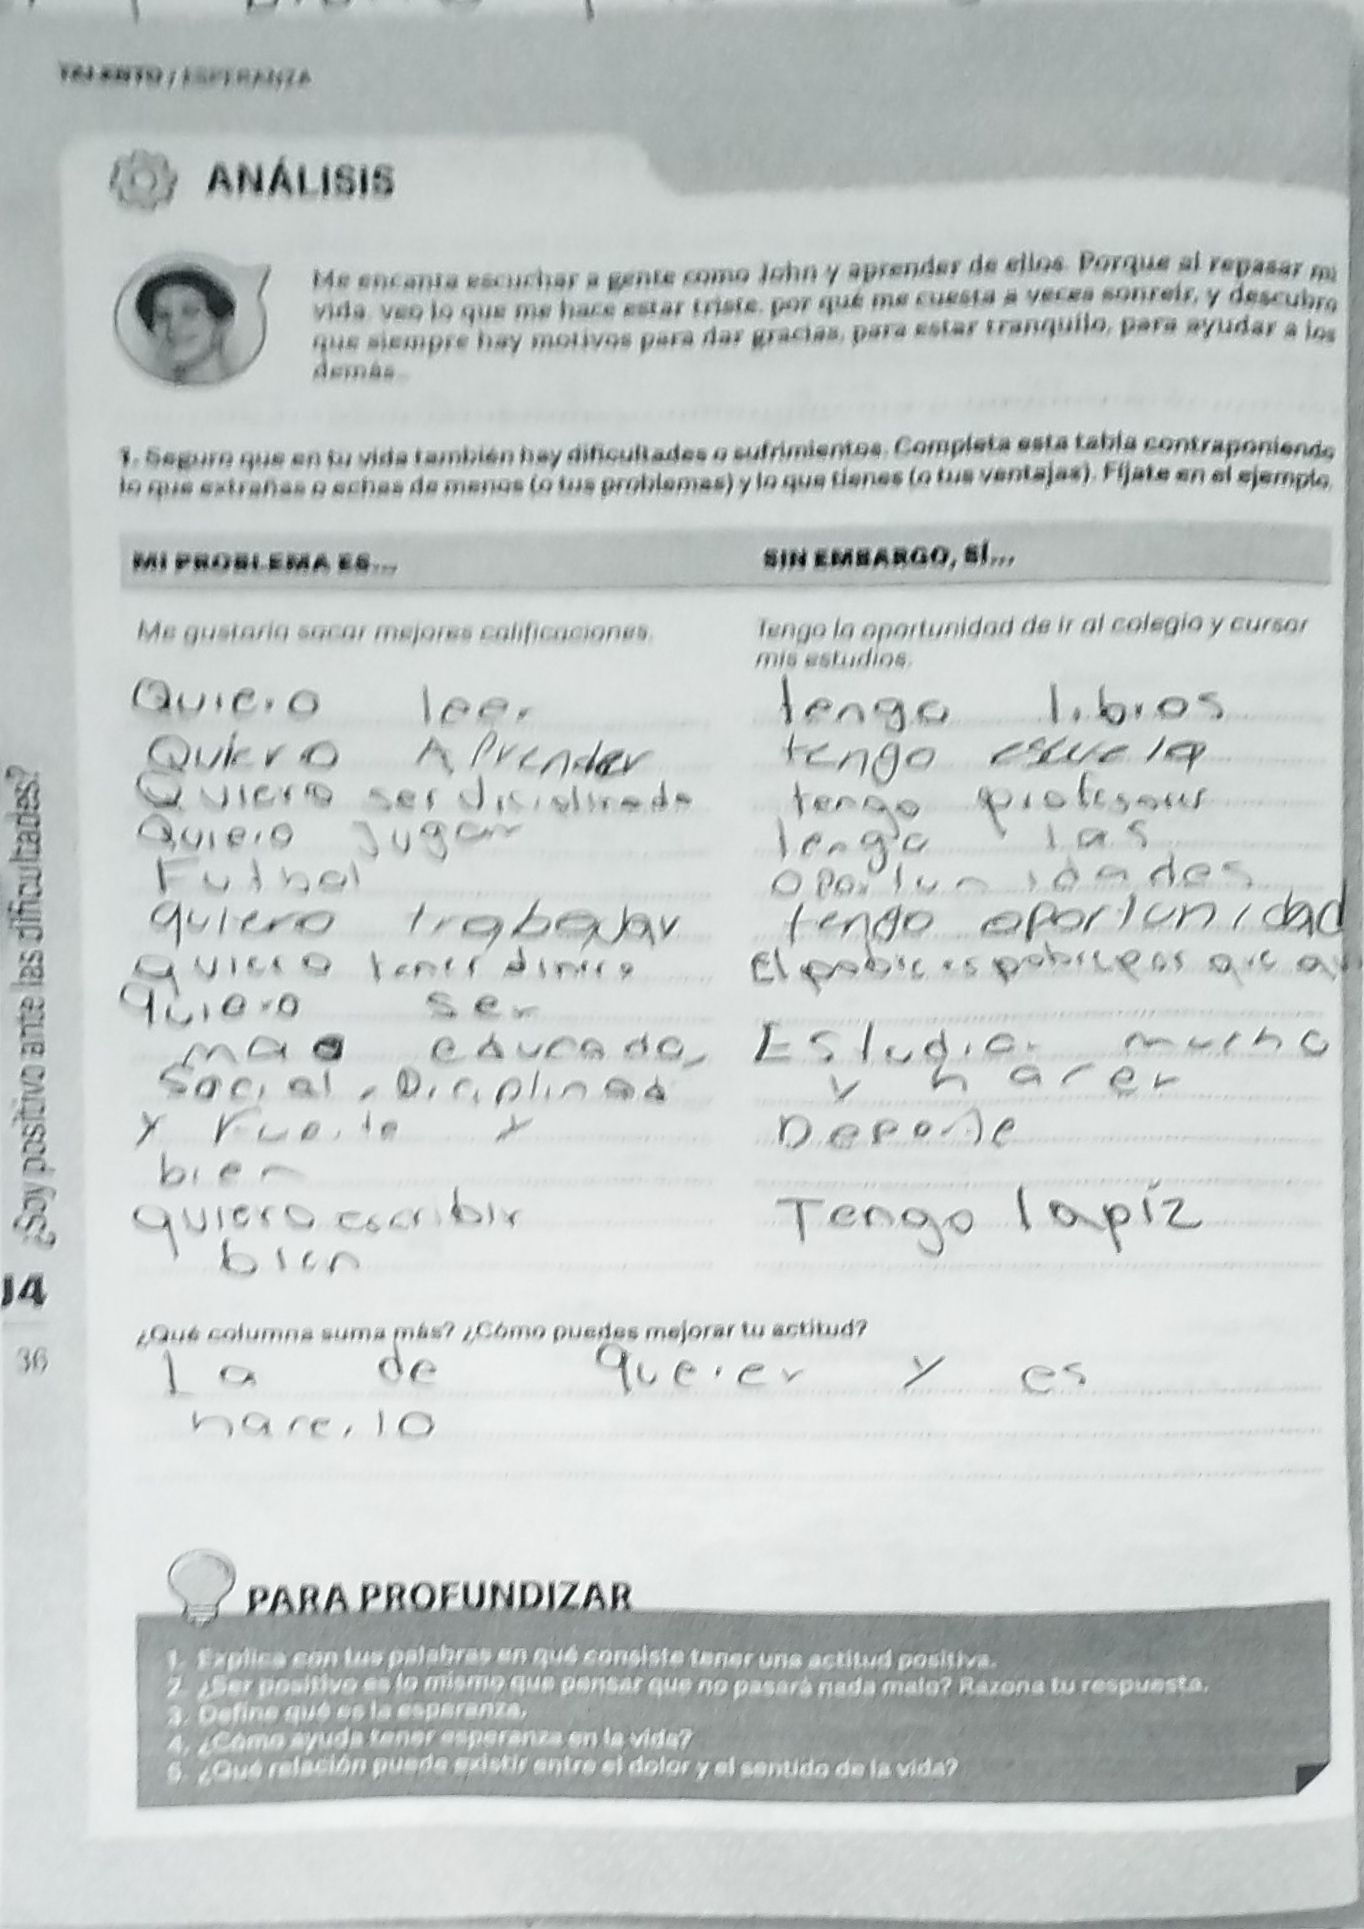 TALENTO / ESPERANZA
ANÁLISIS
Me encanta escuchar a gente como John y aprender de ellos. Porque al repasar mi
vida, veo lo que me hace estar triste, por qué me cuesta a veces sonreír, y descubro
que siempre hay motivos para dar gracias, para estar tranquilo, para ayudar a los
demás...
1. Seguro que en tu vida también hay dificultades o sufrimientos. Completa esta tabla contraponiendo
lo que extrañas o echas de menos (o tus problemas) y lo que tienes (o tus ventajas). Fíjate en el ejemplo.
MI PROBLEMA ES... SIN EMBARGO, SÍ...
Me gustaría sacar mejores calificaciones. Tengo la oportunidad de ir al colegio y cursar
mis estudios.
Quiero leer tengo libros
Quiero Aprender tengo escuela
Quiero ser tengo
Quiero Jugar tengo las
Futbol oportunidades
quiero trabajar tengo oportunidad
quiero tener dinero El pobre es pobre
quiero ser
educado, Estudiar mucho
Social, y hacer
y Fuerte y Deporte
bien
quiero escribir Tengo lapíz
bien
¿Qué columna suma más? ¿Cómo puedes mejorar tu actitud?
La de querer y es
hacerlo
PARA PROFUNDIZAR
1. Explica con tus palabras en qué consiste tener una actitud positiva.
2. ¿Ser positivo es lo mismo que pensar que no pasará nada malo? Razona tu respuesta.
3. Define qué es la esperanza.
4. ¿Cómo ayuda tener esperanza en la vida?
5. ¿Qué relación puede existir entre el dolor y el sentido de la vida?
¿Soy positivo ante las dificultades?
14
36